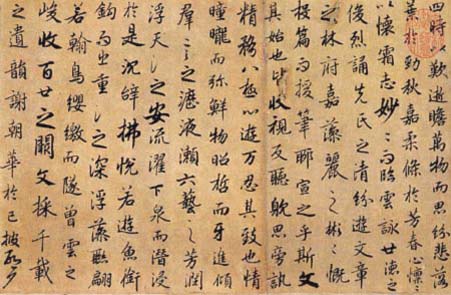 四時以歎逝瞻萬物而思紛悲落
葉於勁秋嘉柔條於芳春心懍〻
以懷霜志妙〻而臨雲詠世德之
俊烈誦先民之清紛遊文章
之林府嘉藻麗之彬〻慨
投篇而援筆聊宣之乎斯文
其始也皆收視反聽耽思旁訊
精務八極心遊万忍其致也情
曈曨而弥鮮物昭晢而牙進傾
羣言之瀝液漱六藝之芳潤
浮天淵之安流濯下泉而潛浸
於是沈辭怫悅若遊魚銜
鈎而出重淵之深浮藻聯翩
若翰鳥纓繳而墜曾雲之
峻收百世之闕文採千載
之遺韻謝朝華於已披啟夕